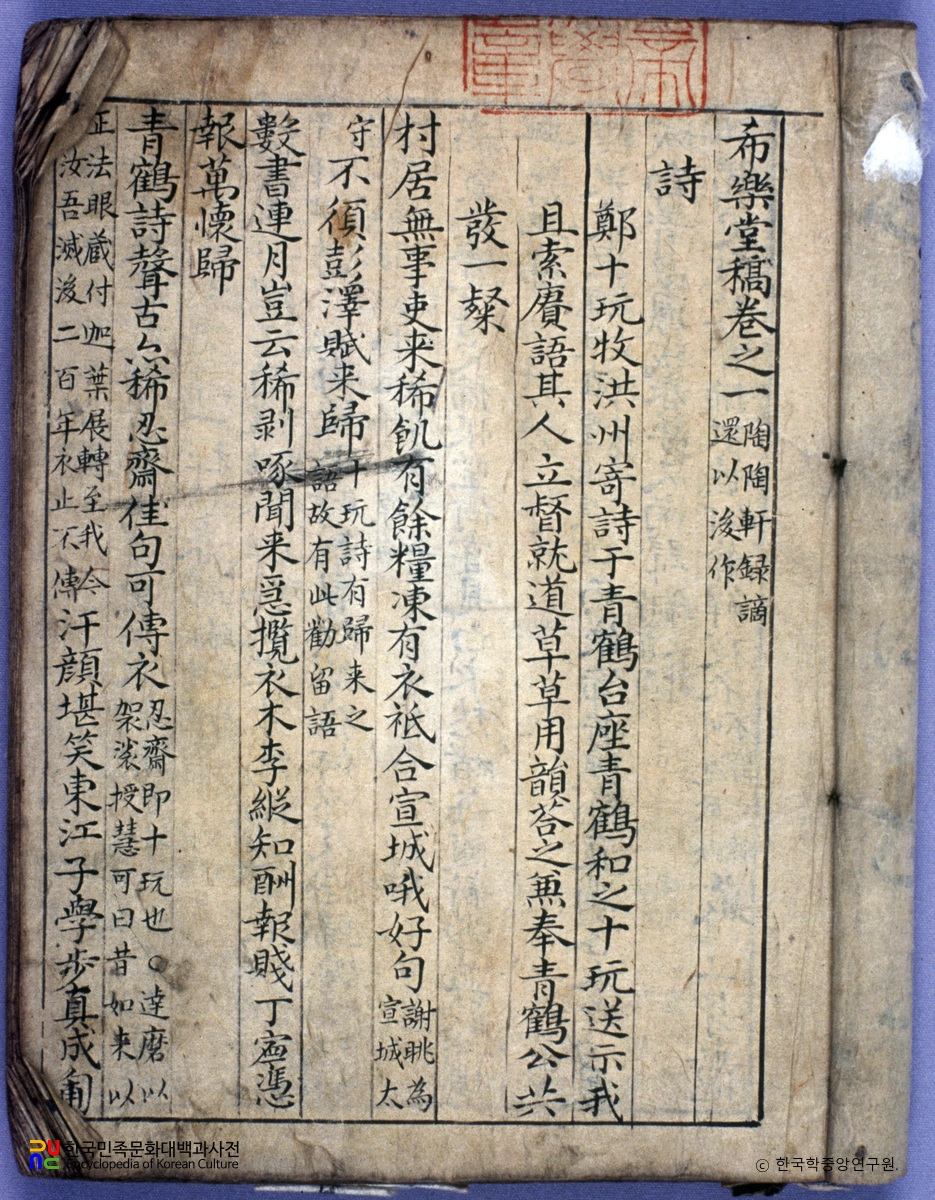 希樂堂稿卷之一
陶陶軒録謫
還以後作
詩
鄭十玩牧洪州寄詩于青鶴台座青鶴和之十玩送示我
且索賡語其人立督就道草草用韻荅之兼奉青鶴公共
發一粲
村居無事吏来稀飢有餘糧凍有衣祗合宣城哦好句
謝眺為
宣城太
守
不須彭澤賦来歸
十玩詩有歸来之
語故有此勸留語
數書連月豈云稀剥啄聞来爲攬衣木李縱知酬報賤丁寧憑
報萬懷歸
青鶴詩聲古亦稀忍齋佳句可傳衣
忍齋即十玩也○達磨以
袈裟授慧可曰昔如来以
正法眼蔵付迦葉展轉至我今
汝吾滅後二百年衣止不傳
汗顔堪笑東江子學歩真成匍
한국민족문화대백과사전
Encyclopedia of Korean Culture
© 한국학중앙연구원.